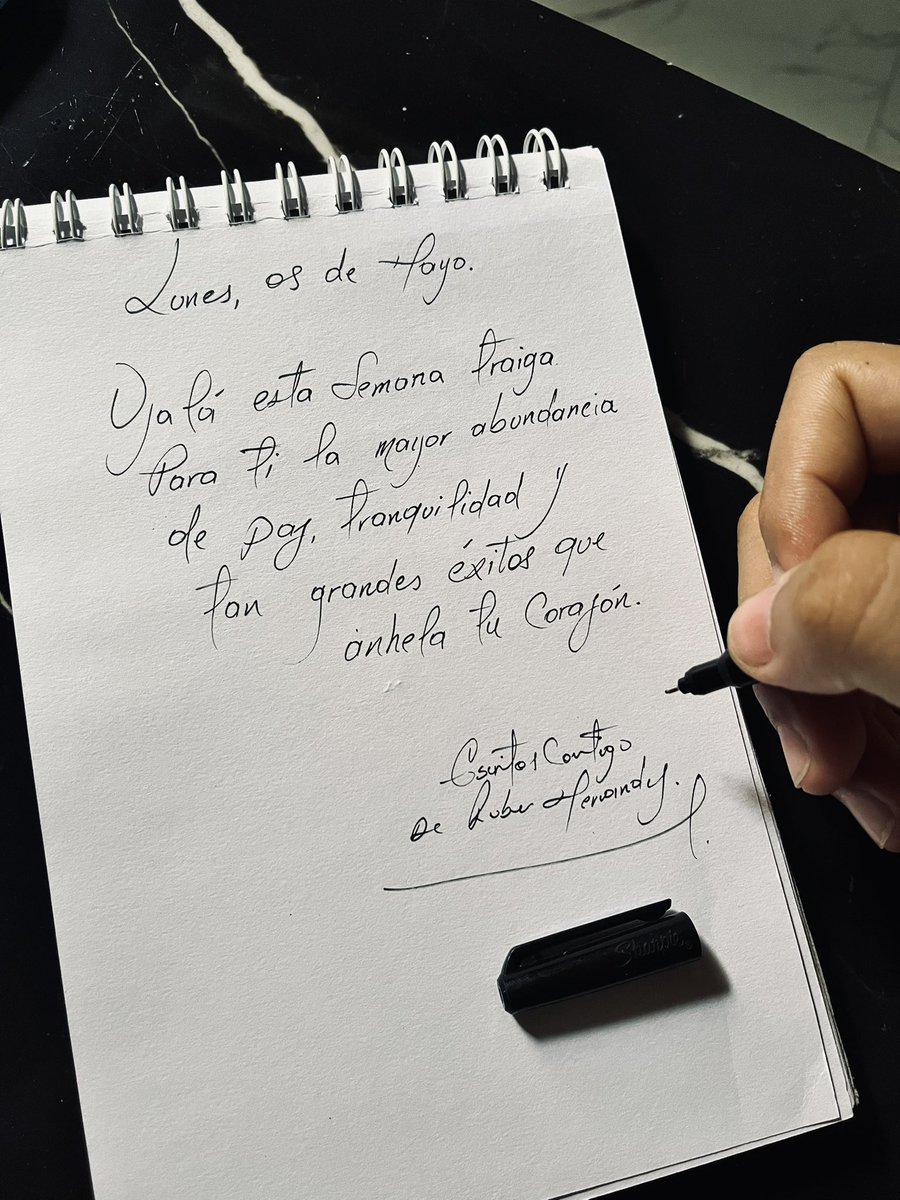 Lunes, 05 de Mayo.
Ojalá esta Semana traiga
Para ti la mayor abundancia
de paz, tranquilidad y
tan grandes éxitos que
anhela tu Corazón.
Escritos Contigo
De Ruber Hernandz.
Sharpie